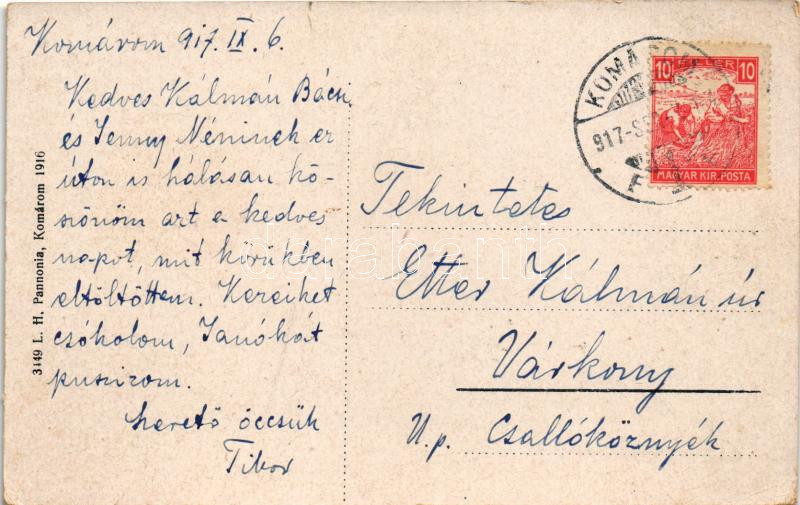 Komárom 917. IX. 6.
Kedves Kálmán Bácsi
és Jenny Néninek ez
úton is hálásan kö-
szönöm azt a kedves
napot, mit körükben
eltöltöttem. Kezeiket
csókolom, Janókát
puszizom.
szerető öccsük
Tibor
3149 L. H. Pannonia, Komárom 1916
KOMÁROM
917-SE
10 FILLÉR 10
MAGYAR KIR. POSTA
Tekintetes
Etter Kálmán úr
Várkony
U. p. Csallóköznyék